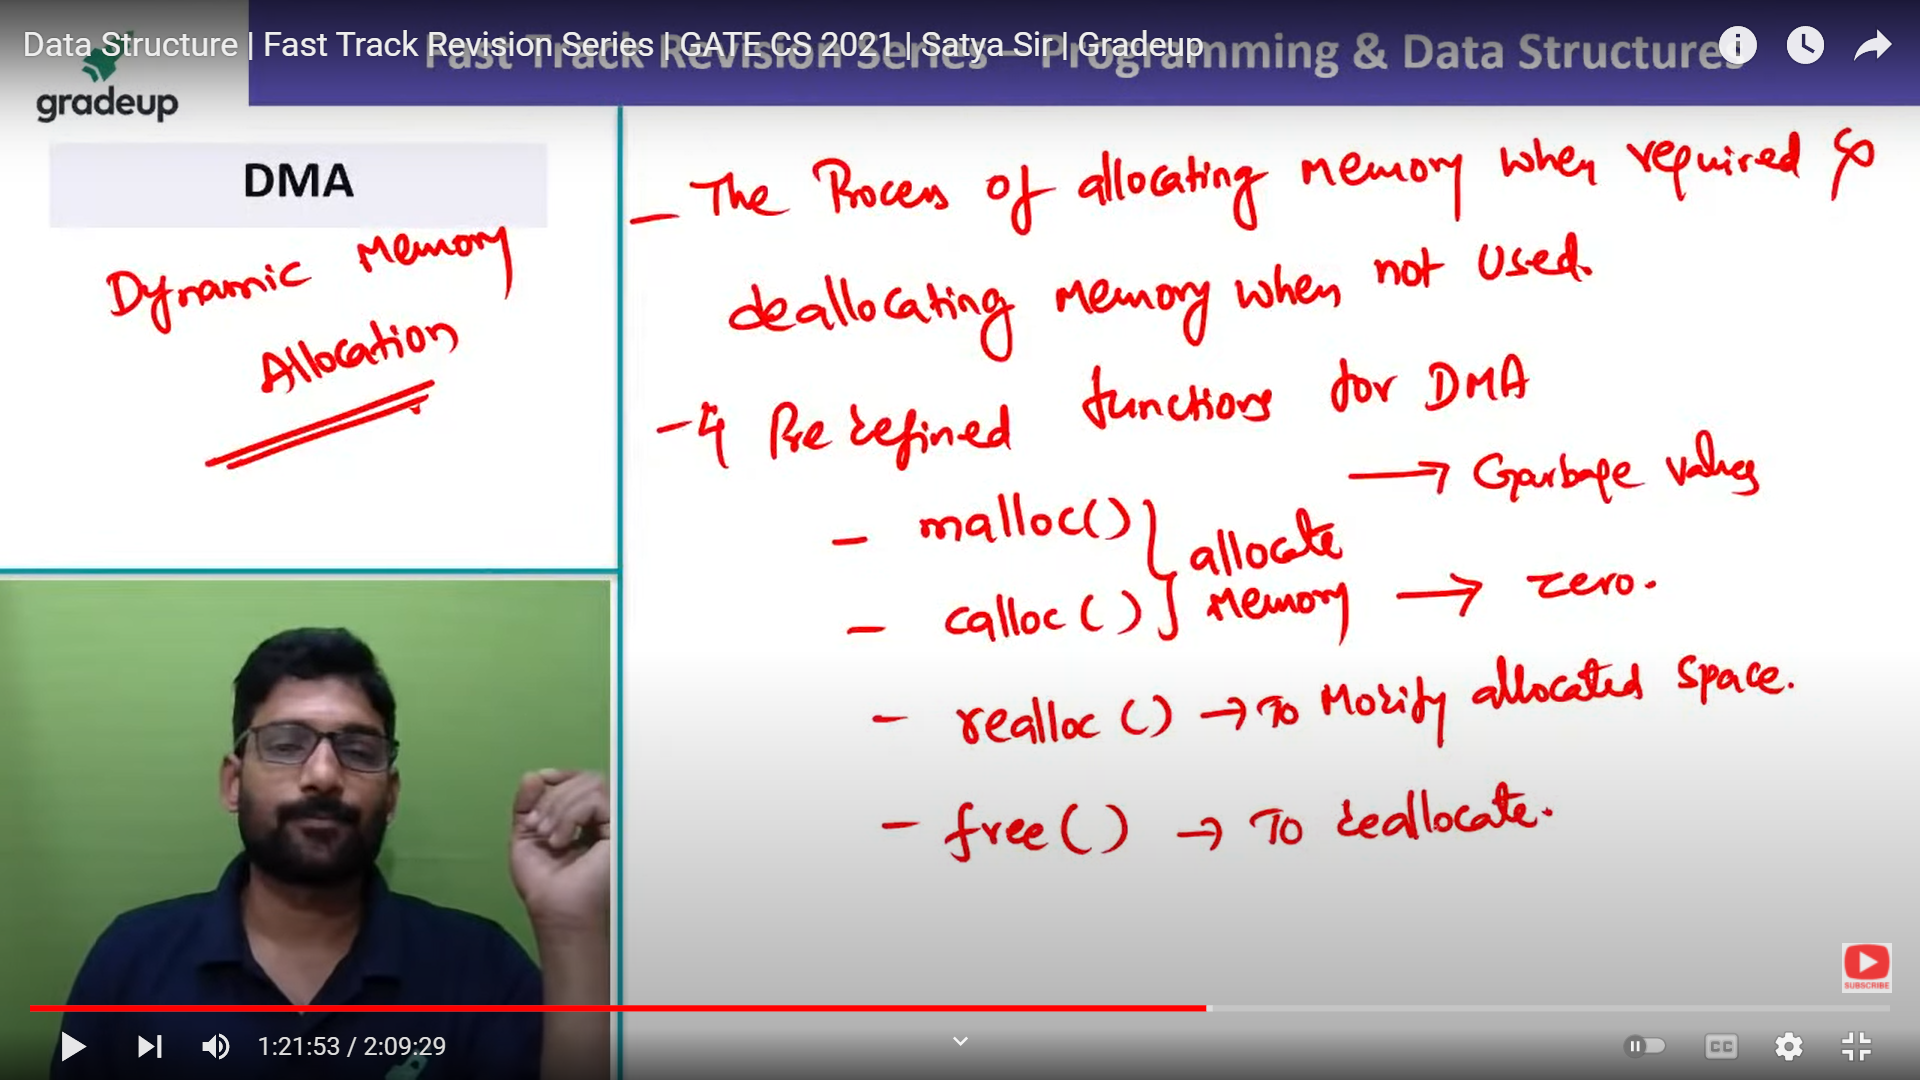 Data Structure | Fast Track Revision Series | GATE CS 2021 | Satya Sir | Gradeup
Fast Track Revision Series – Programming & Data Structures
gradeup
DMA
Dynamic Memory
Allocation
– The Process of allocating memory when required &
deallocating memory when not used.
– 4 Predefined functions for DMA
– malloc() } allocate → Garbage values
– calloc() } Memory → zero.
– realloc() → To Modify allocated space.
– free() → To deallocate.
SUBSCRIBE
1:21:53 / 2:09:29
CC